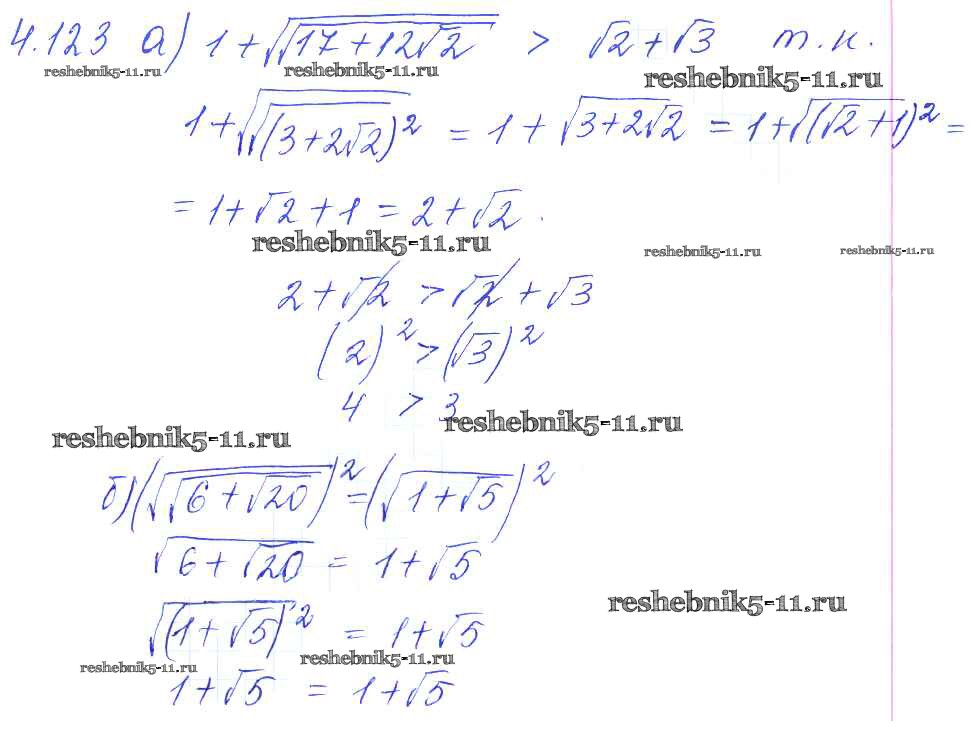 4.123 а) 1+√√(17+12√2) > √2+√3 т.к.
reshebnik5-11.ru reshebnik5-11.ru reshebnik5-11.ru
1+√√(3+2√2)² = 1+√(3+2√2) = 1+√(√2+1)² =
= 1+√2+1 = 2+√2.
reshebnik5-11.ru reshebnik5-11.ru reshebnik5-11.ru
2+√2 > √2+√3
(2)² > (√3)²
4 > 3
reshebnik5-11.ru reshebnik5-11.ru
б) (√√(6+√20))² = (√(1+√5))²
√(6+√20) = 1+√5
reshebnik5-11.ru
√(1+√5)² = 1+√5
reshebnik5-11.ru reshebnik5-11.ru
1+√5 = 1+√5